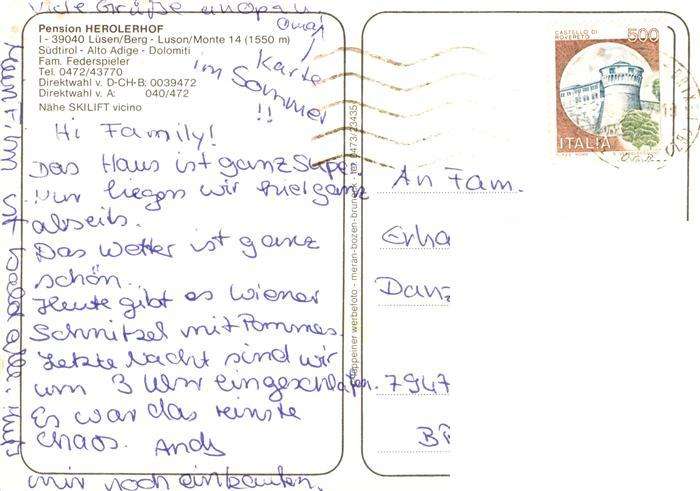 Viele Grüße an Opa,
Oma!
Pension HEROLERHOF
I - 39040 Lüsen/Berg - Luson/Monte 14 (1550 m)
Südtirol - Alto Adige - Dolomiti
Fam. Federspieler
Tel. 0472/43770
Direktwahl v. D-CH-B: 0039472
Direktwahl v. A: 040/472
Nähe SKILIFT vicino
Karte
im Sommer
!!
Hi Family!
Das Haus ist ganz Super.
Nur liegen wir viel ganz
abseits.
Das Wetter ist ganz
schön.
Heute gibt es Wiener
Schnitzel mit Pommes.
Letzte Nacht sind wir
um 3 Uhr eingeschlafen.
Es war das reinste
Chaos. Andy
mir noch einkaufen.
ist
CASTELLO DI
ROVERETO
500
ITALIA
An Fam.
Erha
Danz
7947
werbefoto - meran-bozen-brun
0473/23435